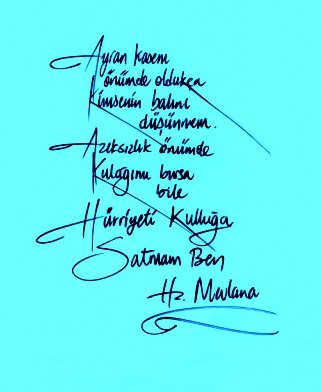 Ayran kasem
önümde oldukça
Kimsenin balını
düşünmem.
Azıksızlık önümde
Kulağımı bursa
bile
Hürriyeti Kulluğa
Satmam Ben
Hz. Mevlana